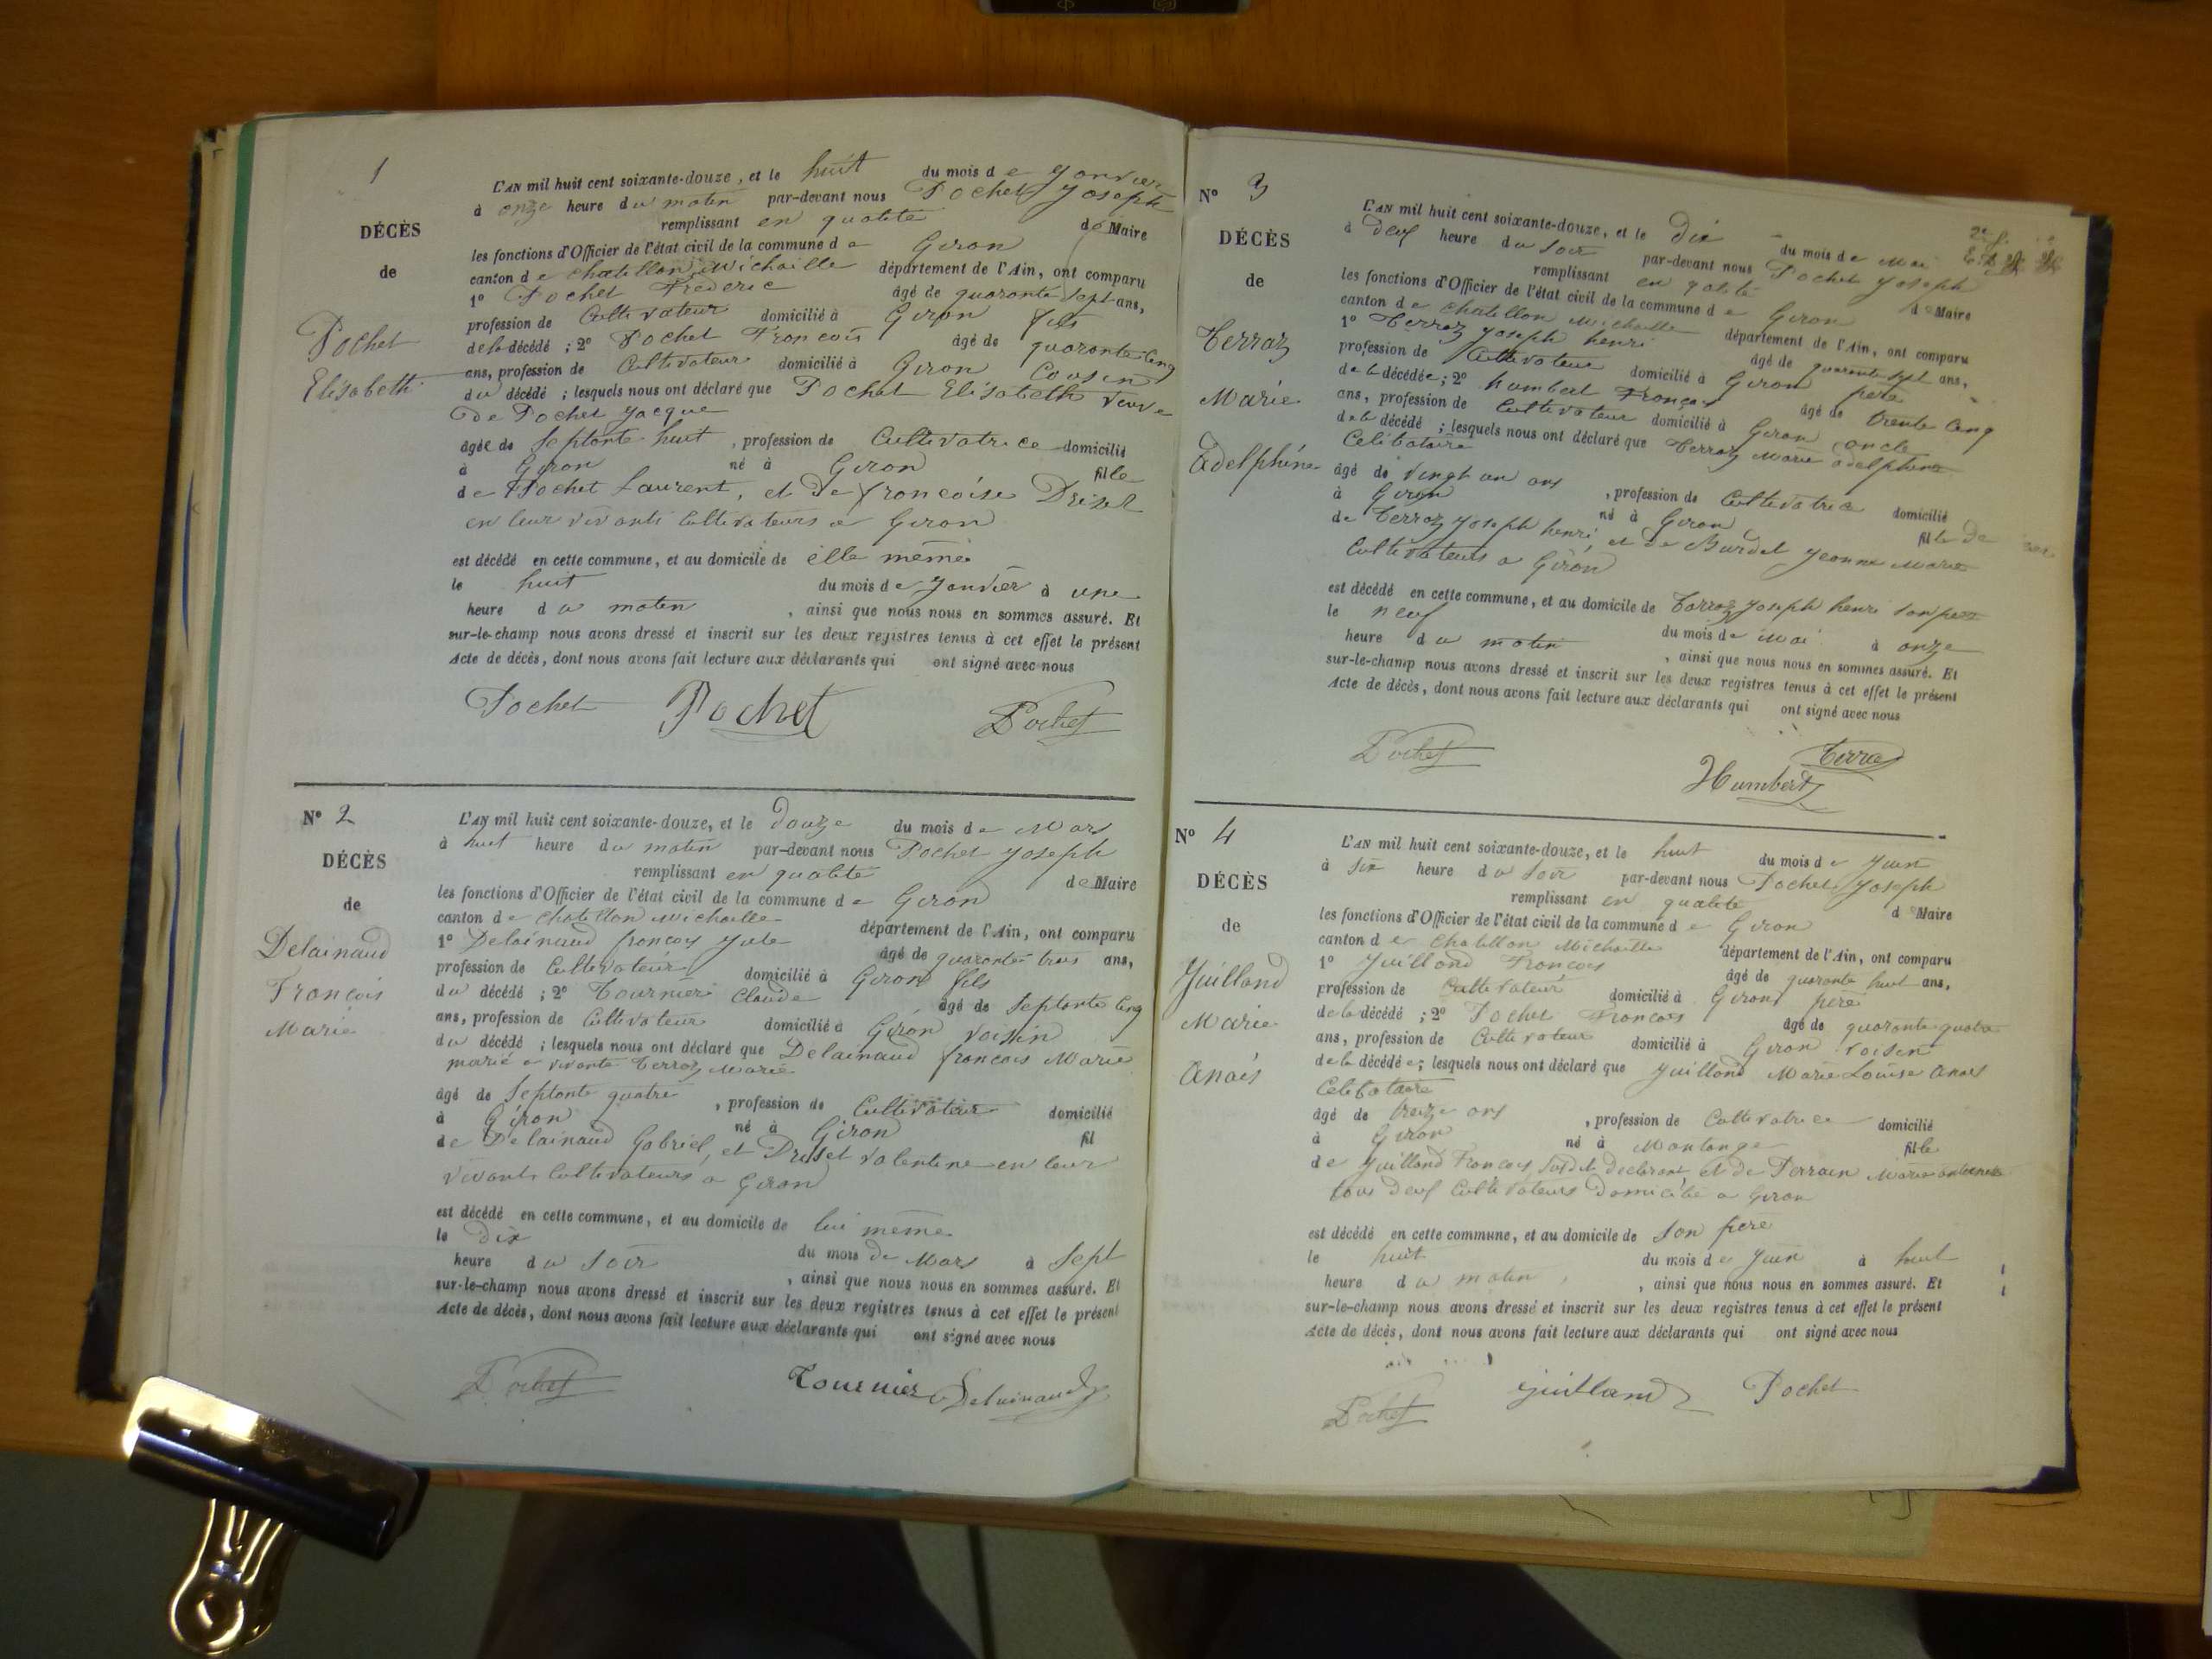 1
DÉCÈS
de
Pochet
Elisabeth
L'AN mil huit cent soixante-douze, et le huit du mois de Janvier
à onze heure du matin par-devant nous Pochet Joseph
remplissant en qualité de Maire
les fonctions d'Officier de l'état civil de la commune de Giron
canton de Chatillon Michaille département de l'Ain, ont comparu
1° Pochet Frederic âgé de quarante sept ans,
profession de Cultivateur domicilié à Giron fils
de la décédé ; 2° Pochet Francois âgé de quarante cinq
ans, profession de Cultivateur domicilié à Giron Cousin
du décédé ; lesquels nous ont déclaré que Pochet Elisabeth veuve
de Pochet Jacque
âgée de septante huit , profession de Cultivatrice domicilié
à Giron né à Giron fille
de Pochet Laurent, et de francoise Drizet
en leur vivants Cultivateurs a Giron
est décédé en cette commune, et au domicile de elle même
le huit du mois de Janvier à une
heure du matin , ainsi que nous nous en sommes assuré. Et
sur-le-champ nous avons dressé et inscrit sur les deux registres tenus à cet effet le présent
Acte de décès, dont nous avons fait lecture aux déclarants qui ont signé avec nous
Pochet Pochet Pochet
N° 2
DÉCÈS
de
Delainaud
Francois
Marie
L'AN mil huit cent soixante-douze, et le douze du mois de Mars
à huit heure du matin par-devant nous Pochet Joseph
remplissant en qualité de Maire
les fonctions d'Officier de l'état civil de la commune de Giron
canton de Chatillon Michaille département de l'Ain, ont comparu
1° Delainaud francois Jule âgé de quarante trois ans,
profession de Cultivateur domicilié à Giron fils
du décédé ; 2° Tournier Claude âgé de septante cinq
ans, profession de Cultivateur domicilié à Giron voisin
du décédé ; lesquels nous ont déclaré que Delainaud francois Marie
marié a vivante Terroz Marie
âgé de septante quatre , profession de Cultivateur domicilié
à Giron né à Giron fil
de Delainaud Gabriel, et Driset Valentine en leur
vivants Cultivateurs a Giron
est décédé en cette commune, et au domicile de lui même
le dix du mois de Mars à sept
heure du soir , ainsi que nous nous en sommes assuré. Et
sur-le-champ nous avons dressé et inscrit sur les deux registres tenus à cet effet le présent
Acte de décès, dont nous avons fait lecture aux déclarants qui ont signé avec nous
Pochet Tournier Delainaud
N° 3
DÉCÈS
de
Terroz
Marie
Edelphine
L'AN mil huit cent soixante-douze, et le dix du mois de Mai
à deuf heure du soir par-devant nous Pochet Joseph
remplissant en qalité de Maire
les fonctions d'Officier de l'état civil de la commune de Giron
canton de Chatillon Michaille département de l'Ain, ont comparu
1° Terroz Joseph henri âgé de quarante sept ans,
profession de Cultivateur domicilié à Giron père
de la décédée ; 2° humbert François âgé de trente cinq
ans, profession de Cultivateur domicilié à Giron oncle
de la décédé ; lesquels nous ont déclaré que Terroz Marie adelphine
Celibataire
âgé de vingt un ans , profession de Cultivatrice domicilié
à Giron né à Giron fille de
de Terroz Joseph henri et de Burdet Jeanne Marie
Cultivateurs a Giron
est décédé en cette commune, et au domicile de Terroz Joseph henri son père
le neuf du mois de Mai à onze
heure du matin , ainsi que nous nous en sommes assuré. Et
sur-le-champ nous avons dressé et inscrit sur les deux registres tenus à cet effet le présent
Acte de décès, dont nous avons fait lecture aux déclarants qui ont signé avec nous
Pochet Terraz
Humbert
N° 4
DÉCÈS
de
Juilland
Marie
Anais
L'AN mil huit cent soixante-douze, et le huit du mois de Juin
à six heure du soir par-devant nous Pochet Joseph
remplissant en qualité de Maire
les fonctions d'Officier de l'état civil de la commune de Giron
canton de Chatillon Michaille département de l'Ain, ont comparu
1° Juilland Francois âgé de quarante huit ans,
profession de Cultivateur domicilié à Giron père
de la décédé ; 2° Pochet Francois âgé de quarante quatre
ans, profession de Cultivateur domicilié à Giron voisin
de la décédée ; lesquels nous ont déclaré que Juilland Marie Louise Anais
Celibataire
âgé de treize ans , profession de Cultivatrice domicilié
à Giron né à Montange fille
de Juilland Francois susdit declarant et de Perrain Marie
tous deuf Cultivateurs domicilié a Giron
est décédé en cette commune, et au domicile de son père
le huit du mois de Juin à huit
heure du matin , ainsi que nous nous en sommes assuré. Et
sur-le-champ nous avons dressé et inscrit sur les deux registres tenus à cet effet le présent
Acte de décès, dont nous avons fait lecture aux déclarants qui ont signé avec nous
Pochet Juilland Pochet